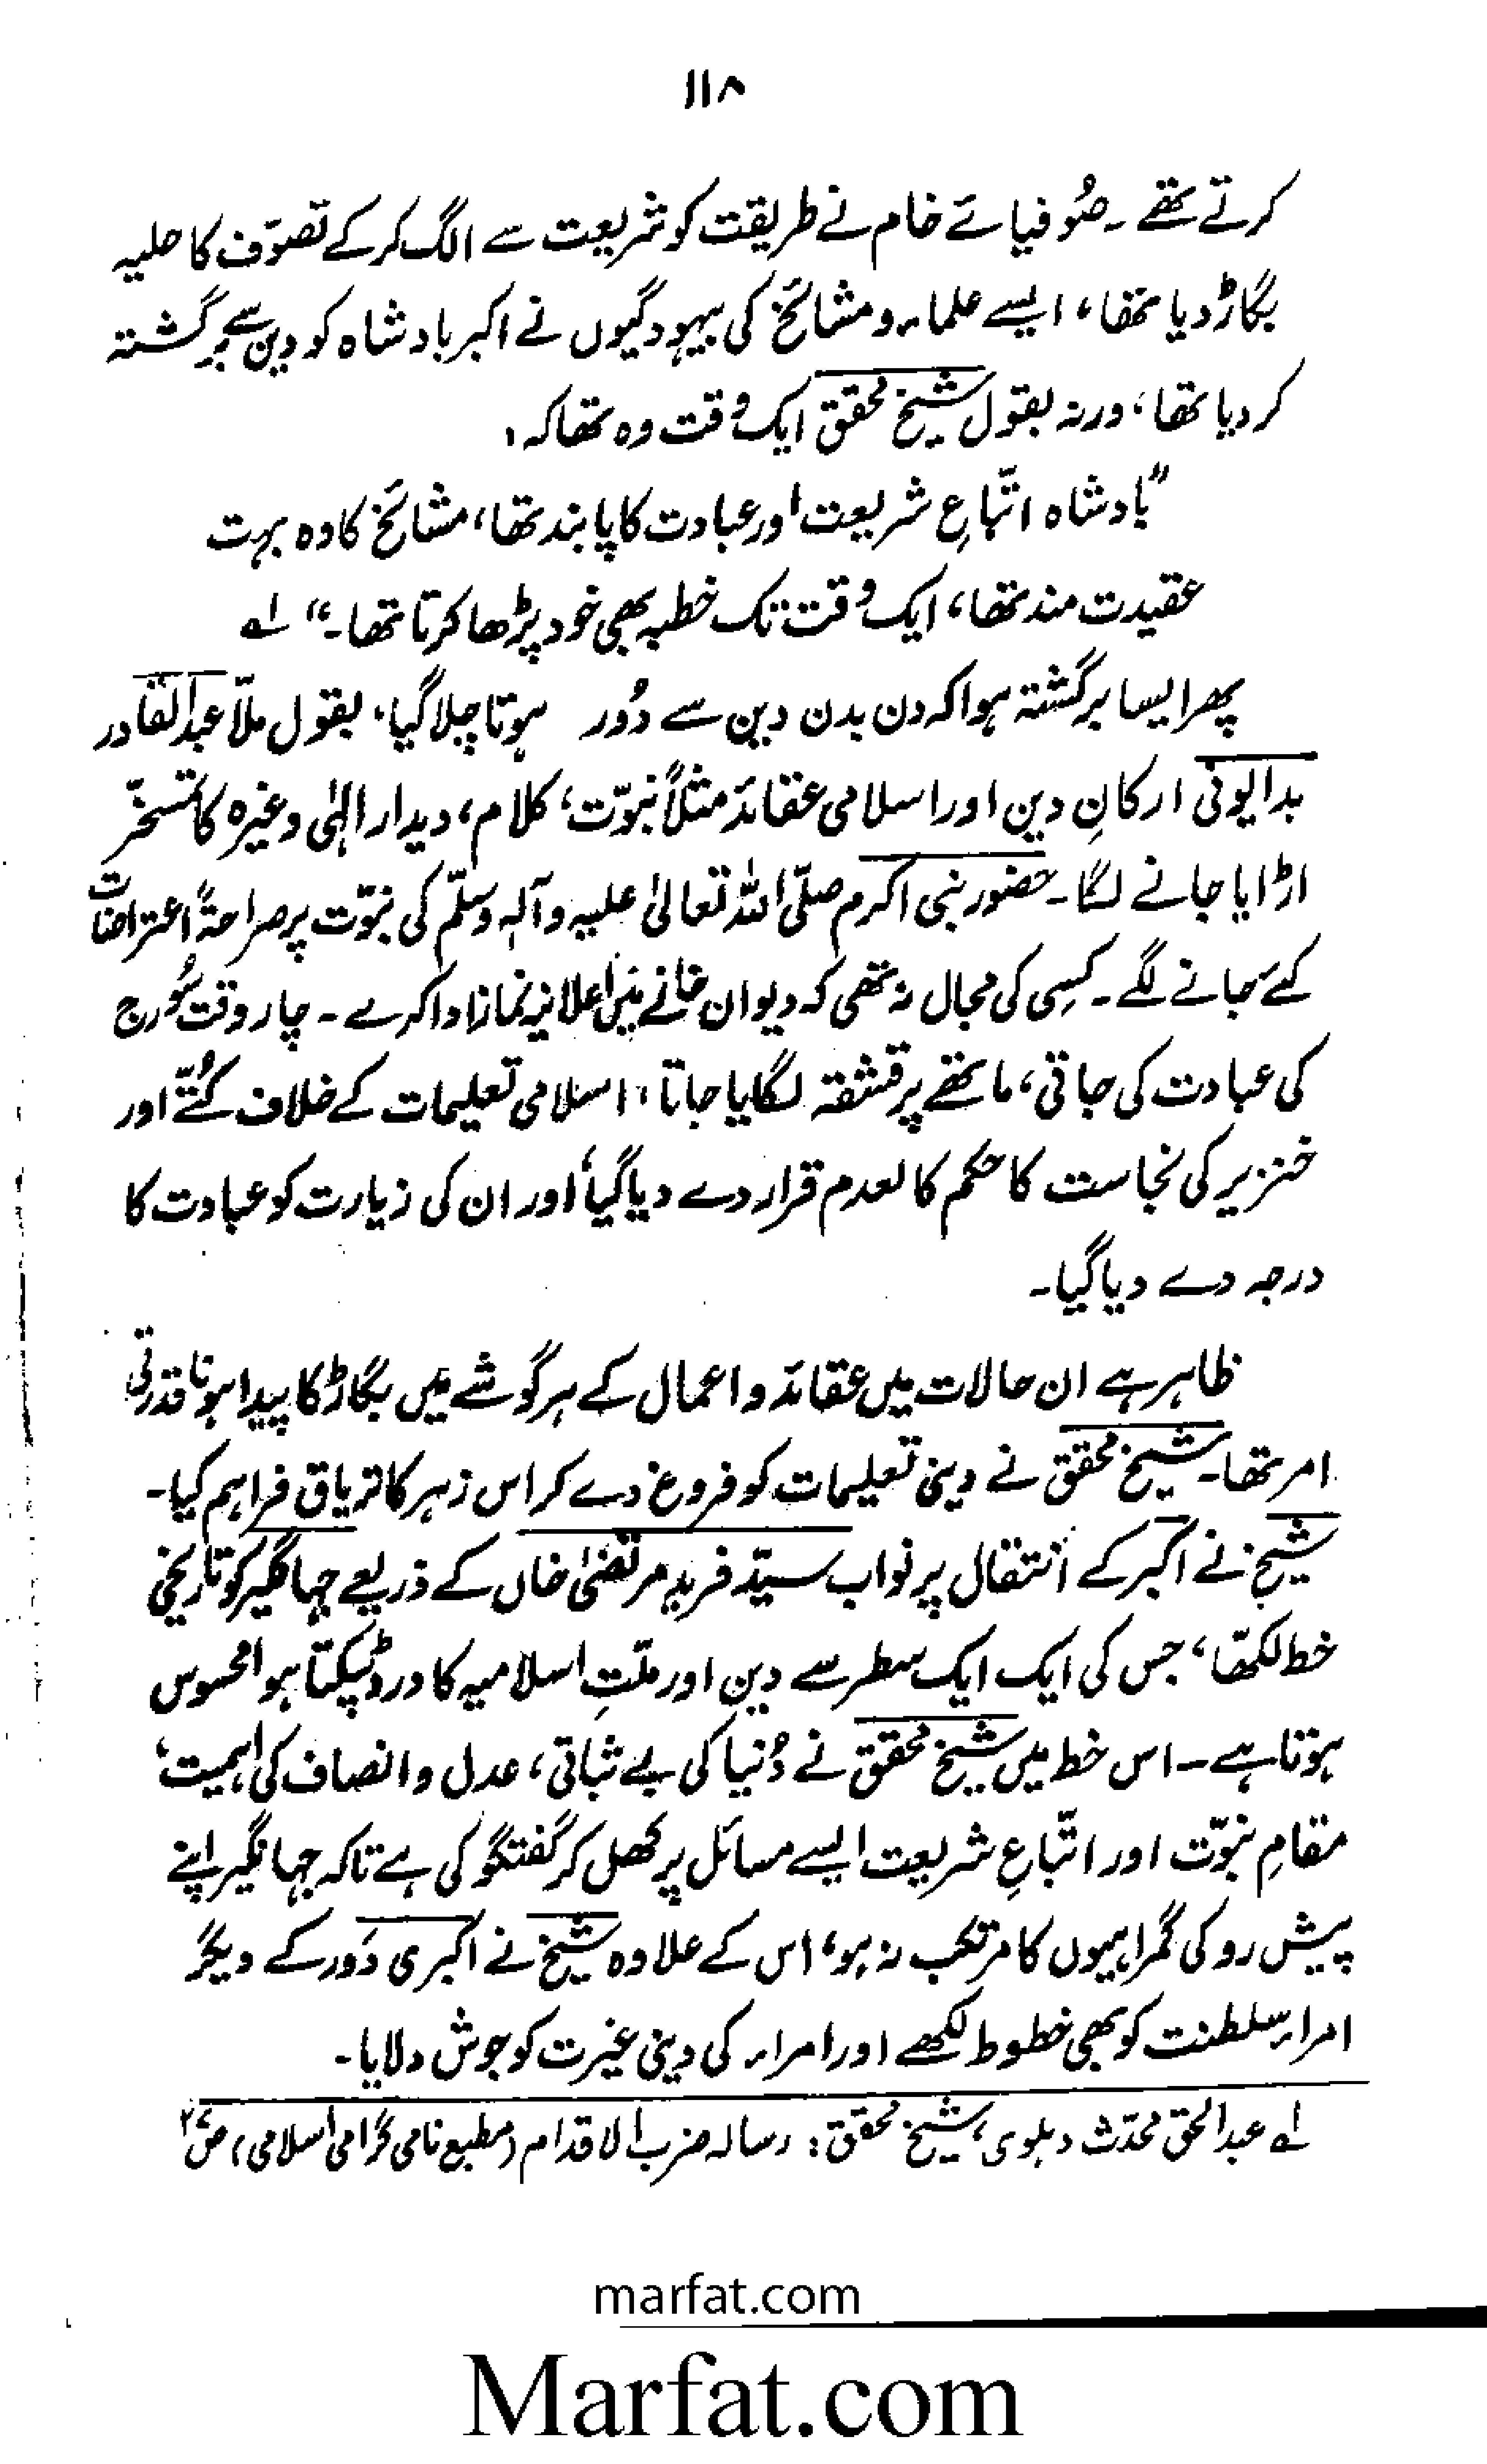 ۱۱۸
کرتے تھے ۔ صُوفیائے خام نے طریقت کو شریعت سے الگ کر کے تصوّف کا حلیہ
بگاڑ دیا تھا، ایسے علماء و مشائخ کی بیہودگیوں نے اکبر بادشاہ کو دین سے برگشتہ
کر دیا تھا، ورنہ بقول شیخ محقق ایک وقت وہ تھا کہ :
"بادشاہ اتّباعِ شریعت اور عبادت کا پابند تھا، مشائخ کا وہ بہت
عقیدت مند تھا، ایک وقت تک خطبہ بھی خود پڑھا کرتا تھا۔" لہ
پھر ایسا برگشتہ ہوا کہ دن بدن دین سے دُور ہوتا چلا گیا، بقول ملّا عبدالقادر
بدایونی ارکانِ دین اور اسلامی عقائد مثلاً نبوّت، کلام، دیدار الٰہی وغیرہ کا تمسخّر
اڑایا جانے لگا۔ حضور نبی اکرم صلّی اللہ تعالیٰ علیہ وآلہٖ وسلّم کی نبوّت پر صراحۃً اعتراضات
کئے جانے لگے ۔ کسِی کی مجال نہ تھی کہ دیوان خانے میں اعلانیہ نماز ادا کرے ۔ چار وقت سُورج
کی عبادت کی جاتی، ماتھے پر قشقہ لگایا جاتا، اسلامی تعلیمات کے خلاف کُتّے اور
خنزیر کی نجاست کا حکم کالعدم قرار دے دیا گیا، اور ان کی زیارت کو عبادت کا
درجہ دے دیا گیا۔
ظاہر ہے ان حالات میں عقائد و اعمال کے ہر گوشے میں بگاڑ کا پیدا ہونا قدرتی
امر تھا۔ شیخ محقق نے دینی تعلیمات کو فروغ دے کر اس زہر کا تریاق فراہم کیا۔
شیخ نے اکبر کے انتقال پر نواب سیّد فرید مرتضیٰ خاں کے ذریعے جہانگیر کو تاریخی
خط لکھّا، جس کی ایک ایک سطر سے دین اور ملّتِ اسلامیہ کا درد ٹپکتا ہوا محسوس
ہوتا ہے ۔ اس خط میں شیخ محقق نے دُنیا کی بے ثباتی، عدل و انصاف کی اہمیت،
مقامِ نبوّت اور اتّباعِ شریعت ایسے مسائل پر کھل کر گفتگو کی ہے تاکہ جہانگیر اپنے
پیش رو کی گمراہیوں کا مرتکب نہ ہو، اس کے علاوہ شیخ نے اکبری دَور کے دیگر
امراء سلطنت کو بھی خطوط لکھے اور امراء کی دینی غیرت کو جوش دلایا۔
لہ عبدالحق محدّث دہلوی، شیخ محقق : رسالہ ضرب الاقدام (مطبع نامی گرامی اسلامی)
marfat.com
Marfat.com